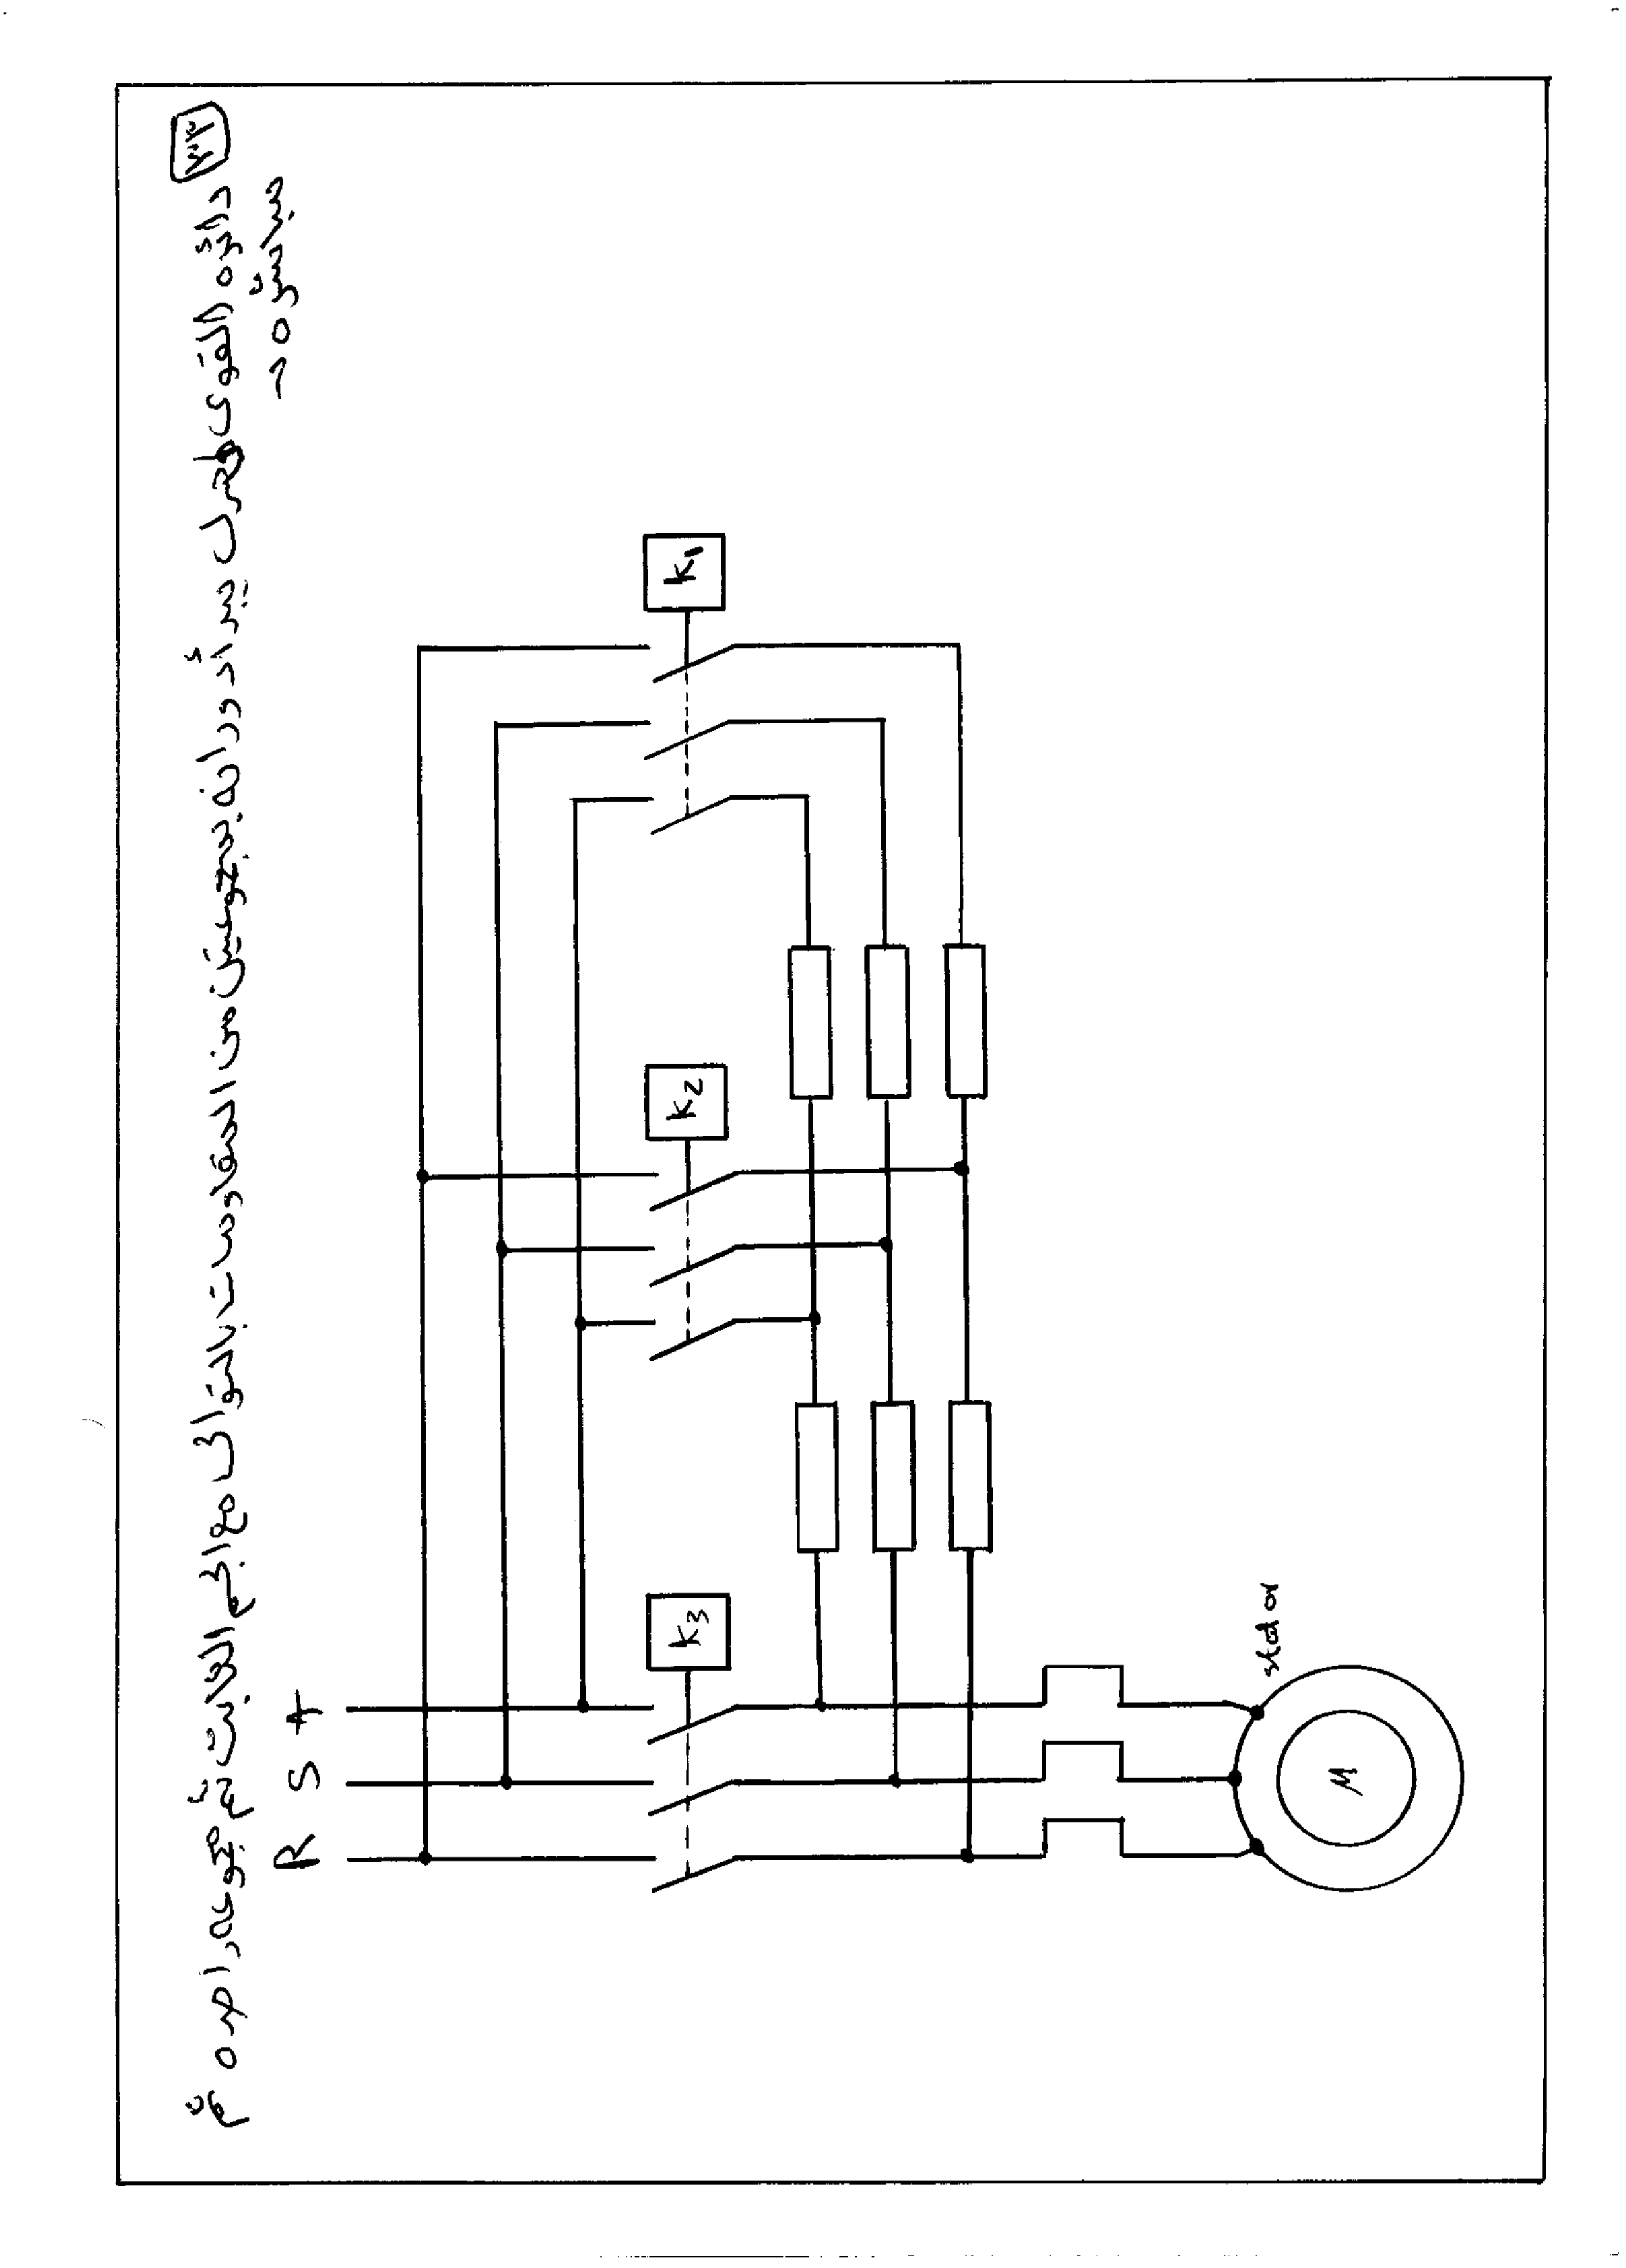 ٣٣ دائره القوى لمحرك يبدأ دورانه بمجموعتين من المقاومات بالتوالى مع الجسم الثابت ثم بمجموعه واحده ثم
مباشرة -
K1
K2
K3
R S T
stator
M